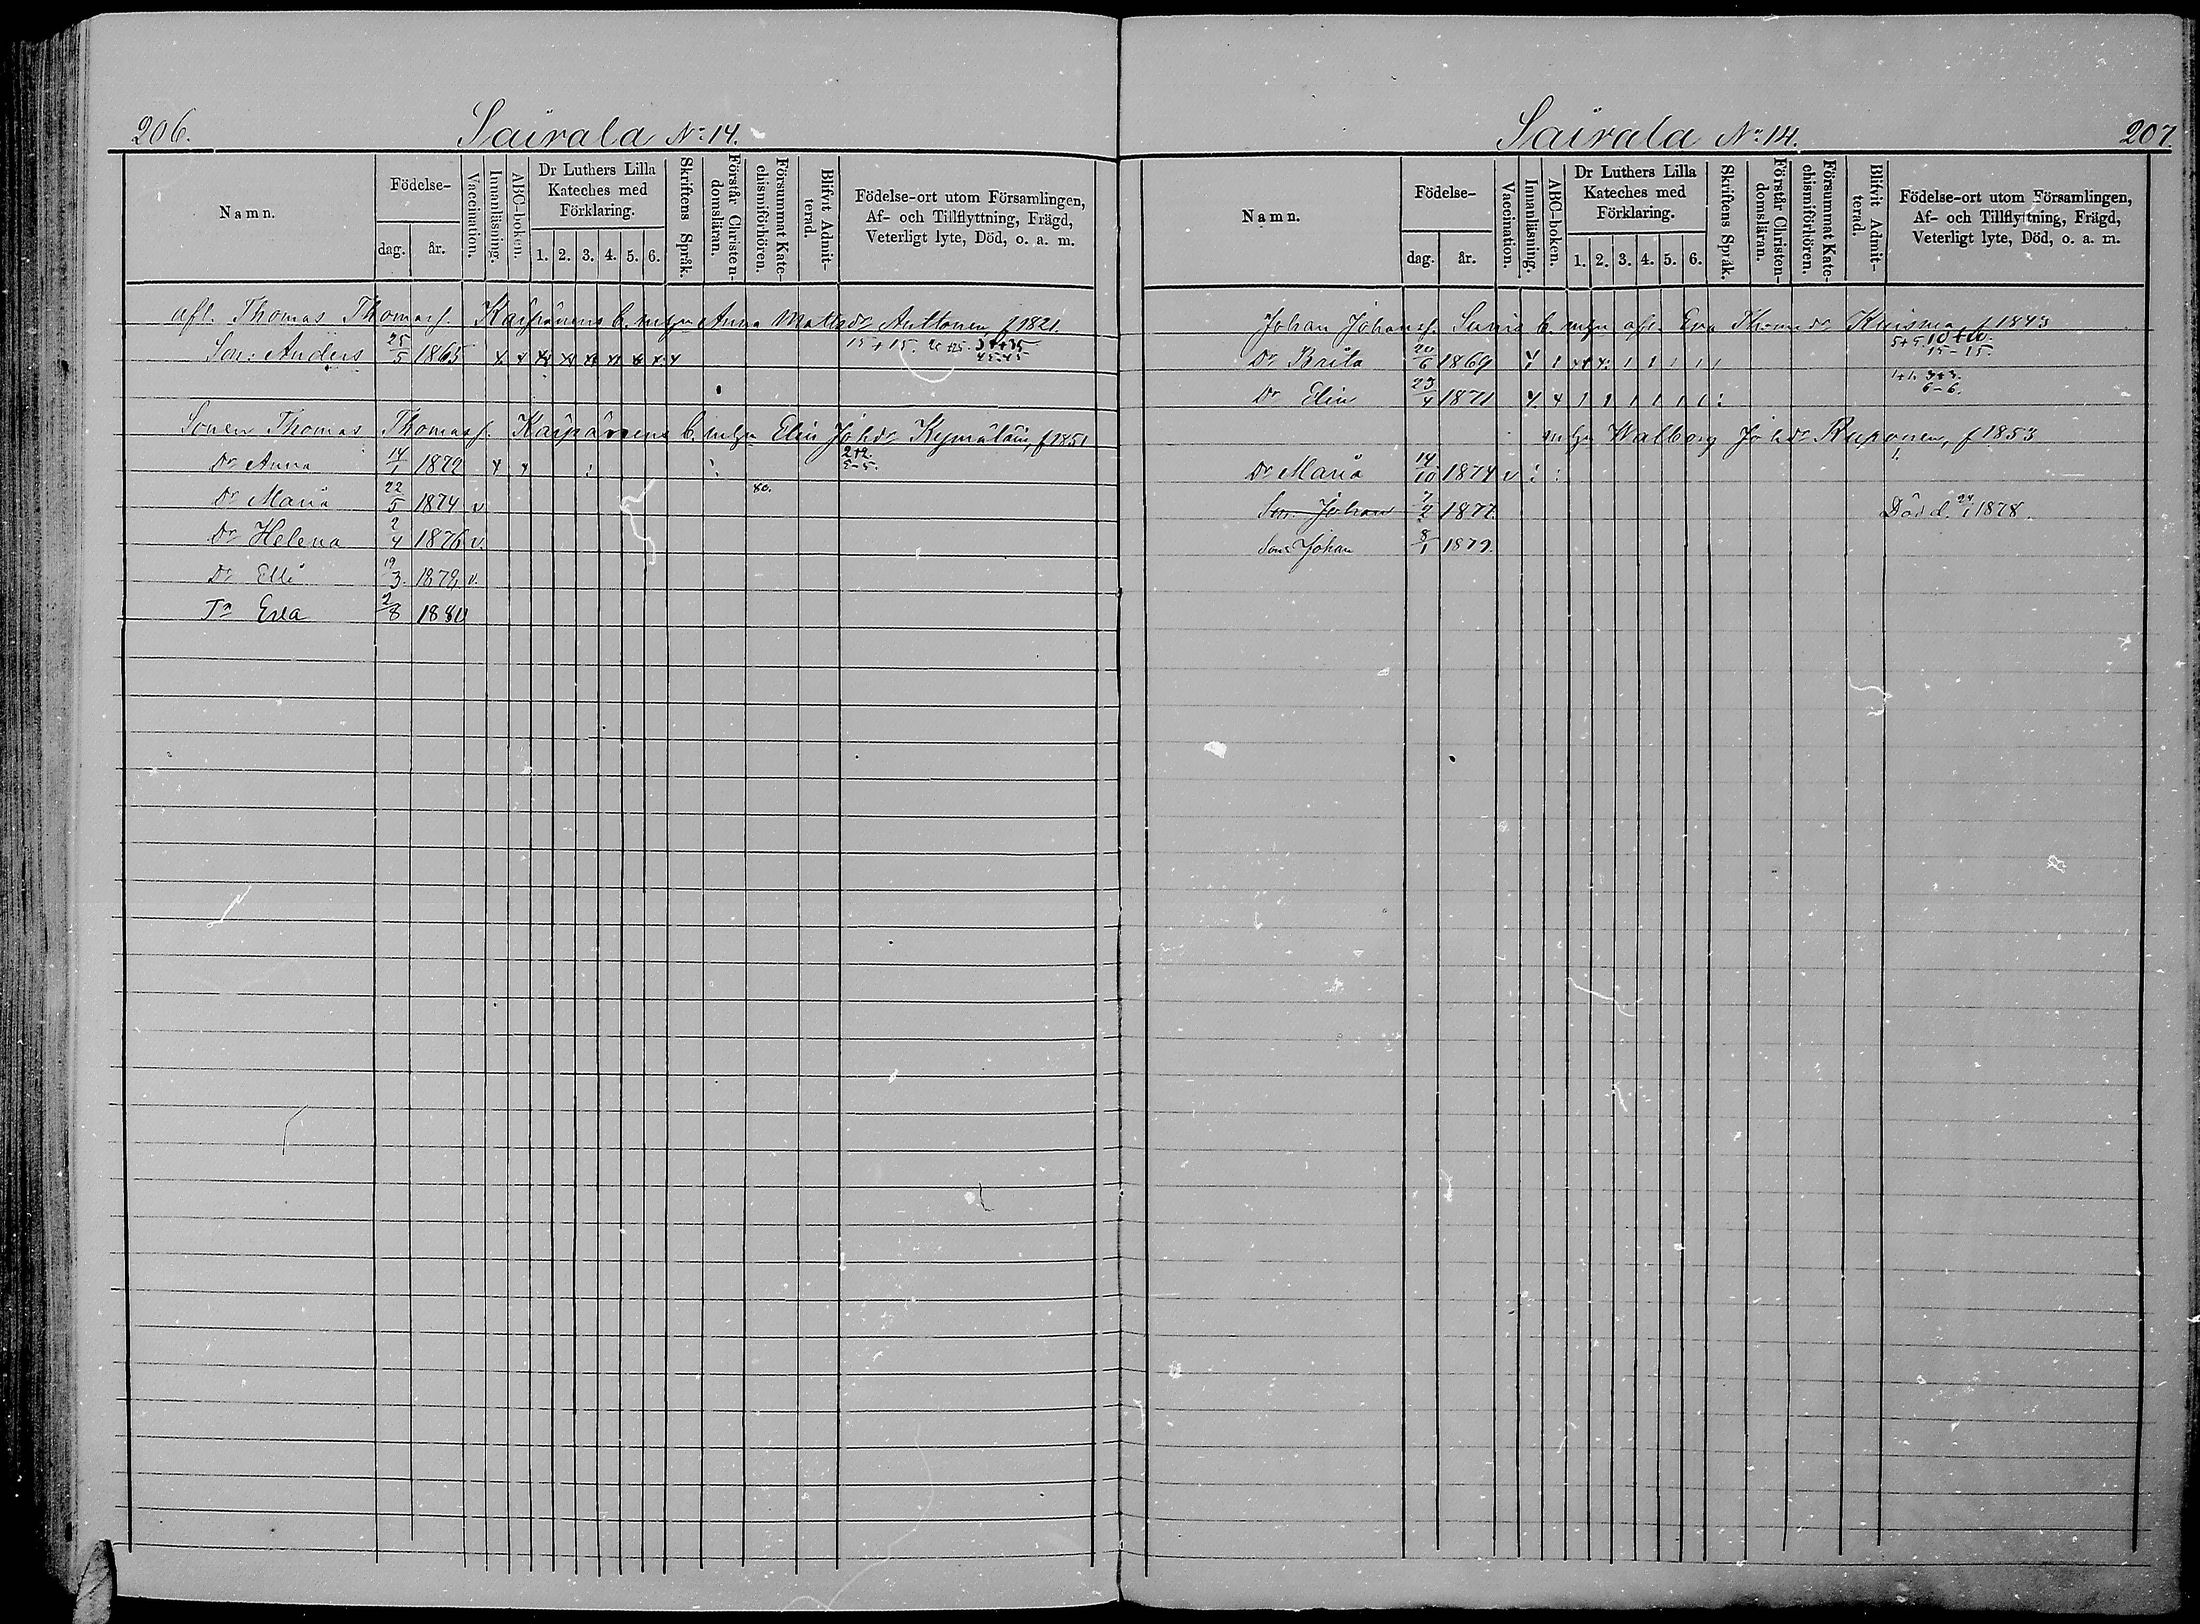 206.
Sairala No 14.
Namn.
Födelse-
dag.
år.
Vaccination.
Innanläsning.
ABC-boken.
Dr Luthers Lilla
Kateches med
Förklaring.
1. 2. 3. 4. 5. 6.
Skriftens Språk.
Förstår Christen-
domsläran.
Försummat Kate-
chismiförhören.
Blifvit Admit-
terad.
Födelse-ort utom Församlingen,
Af- och Tillflyttning, Frägd,
Veterligt lyte, Död, o. a. m.
afl. Thomas Thomas f. Anna Matts dr Anttonen, f 1821.
Son: Anders 25/5 1865 15+15.
Sonen Thomas Thomas f. Elin Joh dr f 1851
Dr Anna 14/1 1872 2+2. 5-5.
Dr Maria 22/5 1874 v 80.
Dr Helena 2/4 1876 v.
Dr Elli 19/3 1879 v.
Tr Eva 2/8 1881
Sairala No 14.
207.
Namn.
Födelse-
dag.
år.
Vaccination.
Innanläsning.
ABC-boken.
Dr Luthers Lilla
Kateches med
Förklaring.
1. 2. 3. 4. 5. 6.
Skriftens Språk.
Förstår Christen-
domsläran.
Försummat Kate-
chismiförhören.
Blifvit Admit-
terad.
Födelse-ort utom Församlingen,
Af- och Tillflyttning, Frägd,
Veterligt lyte, Död, o. a. m.
Johan Johans f. Eva Thoms dr Kuisma, f 1843
Dr Brita 20/6 1869 5+5 10+10. 15-15.
Dr Elin 23/4 1871 1+1. 3+3. 6-6.
Walborg Joh dr Ruponen, f 1853
Dr Maria 14/10 1874 v
Son: Johan 7/2 1877. Död d. 24/1 1878.
Son: Johan 8/1 1879.